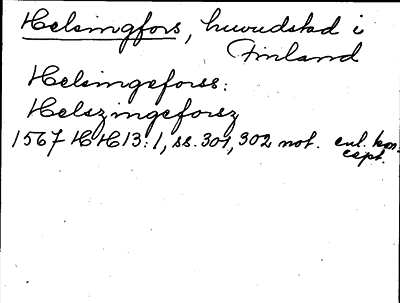 Helsingfors, huvudstad i
Finland
Helsingeforss:
Helszingeforsz
1567 HH13:1, ss. 301, 302 not. enl. kon-
cept.